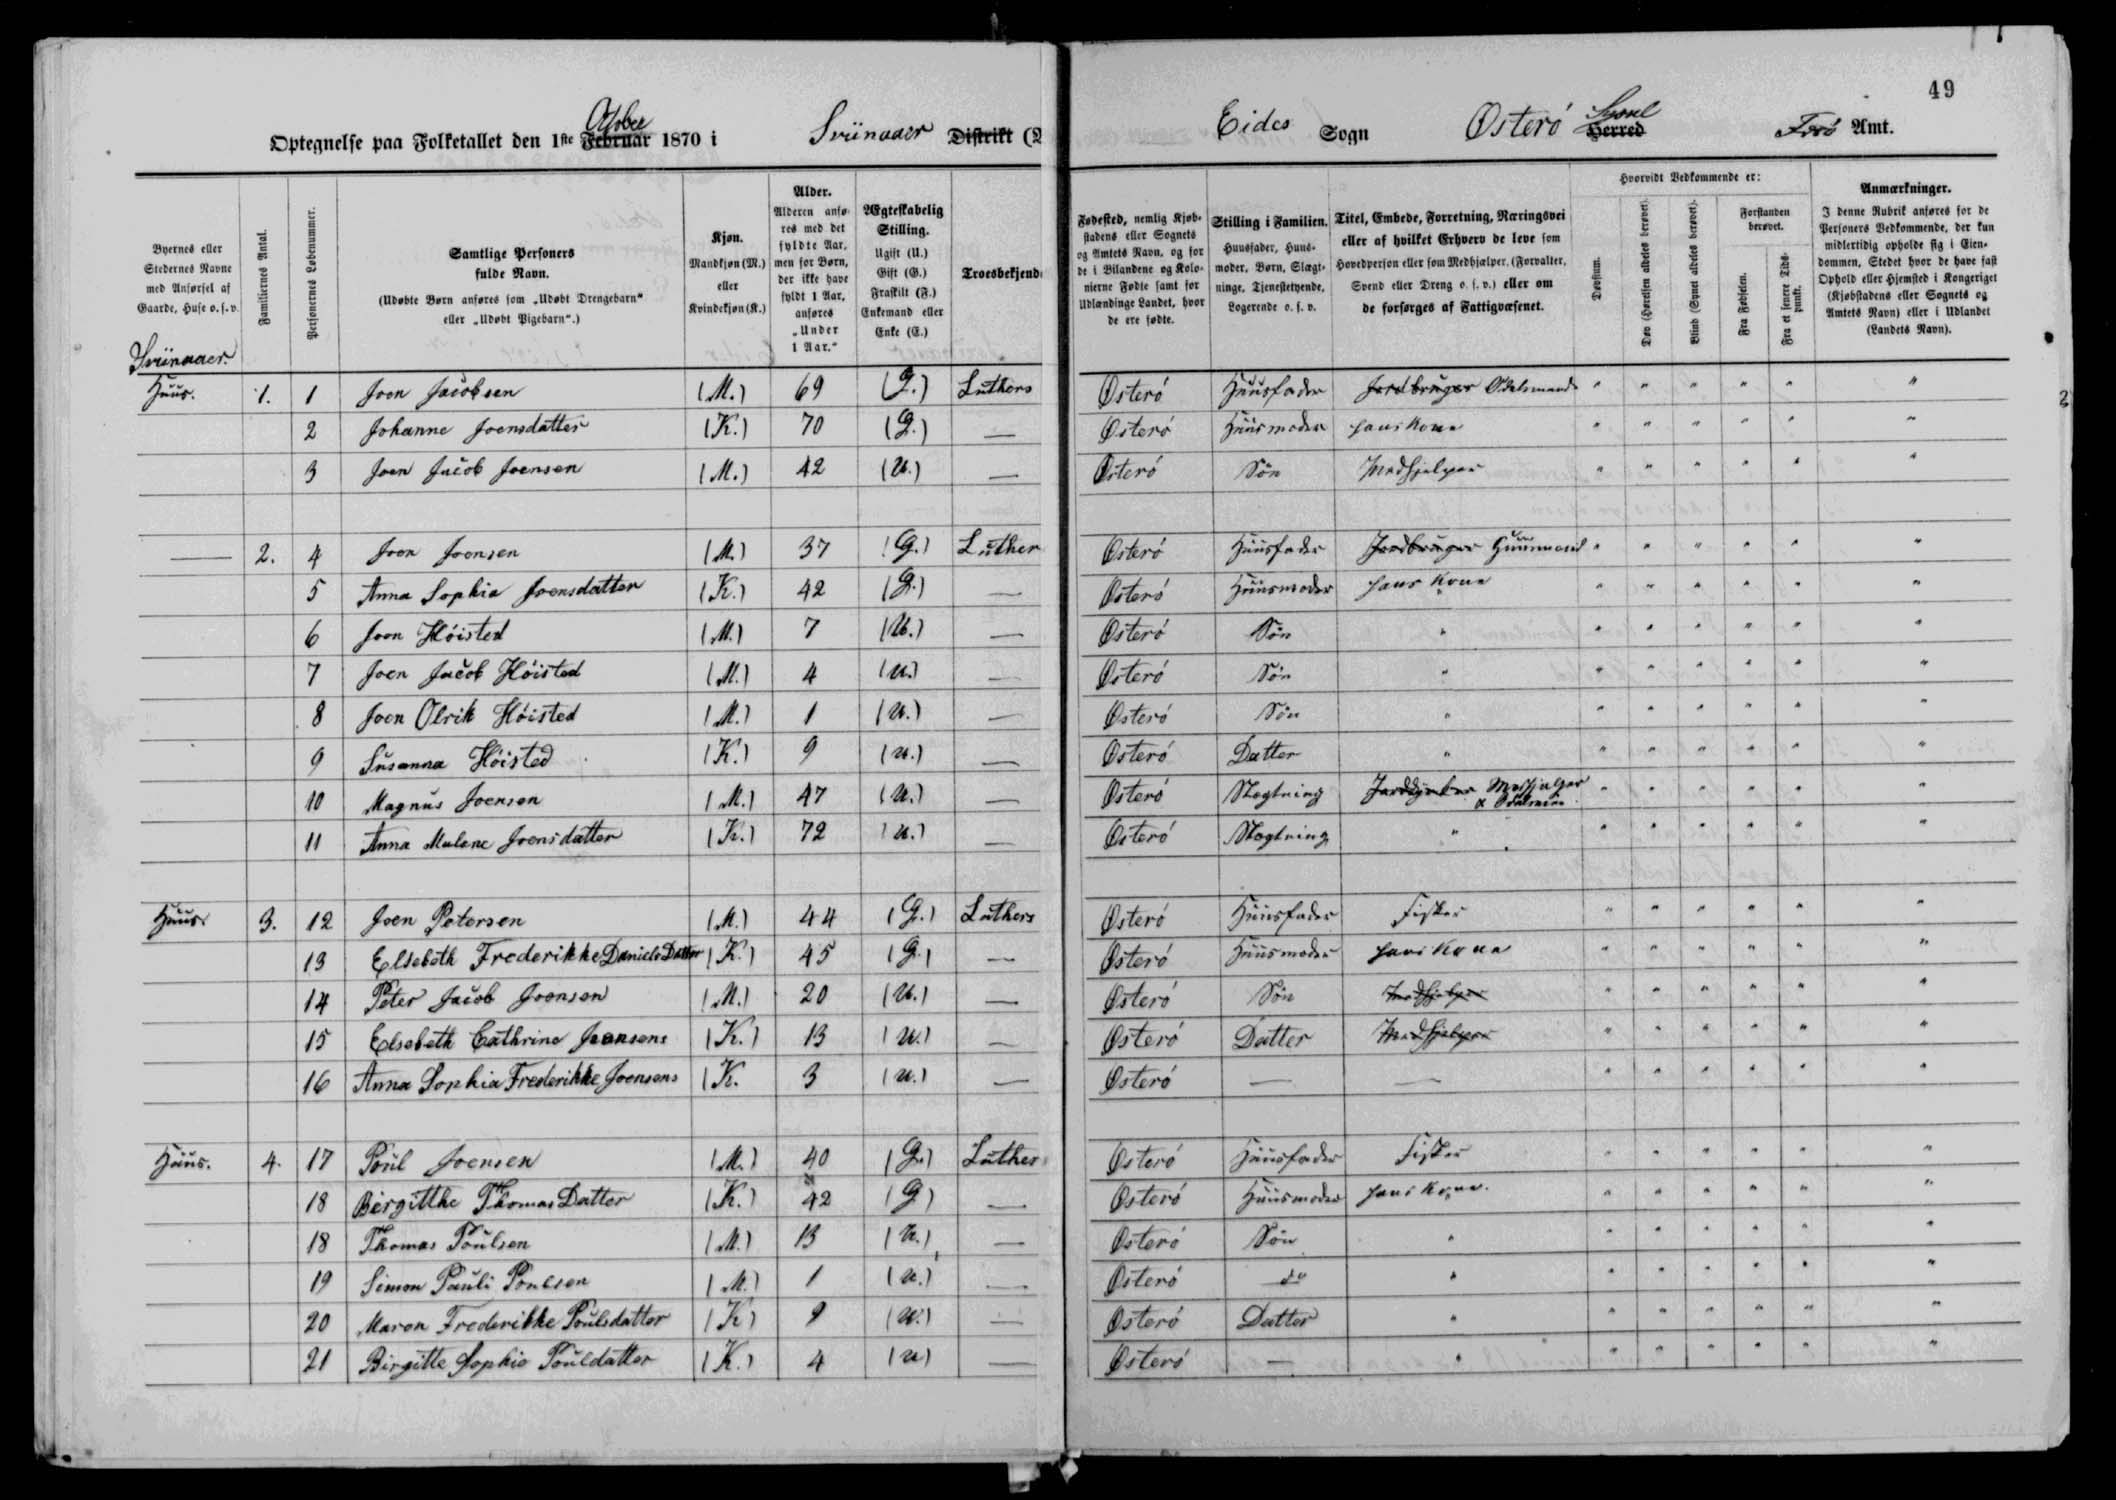 49
October
Optegnelse paa Folketallet den 1ste Februar 1870 i Sviinaaer Distrikt
Eides Sogn Österö Herred Sysel Færö Amt.
Byernes eller Stedernes Navne med Anførsel af Gaarde, Huse o. s. v.
Familiernes Antal.
Personernes Løbenummer.
Samtlige Personers fulde Navn.
(Udøbte Børn anføres som „Udøbt Drengebarn“ eller „Udøbt Pigebarn“.)
Kjøn.
Mandkjøn (M.) eller Kvindekjøn (K.)
Alder.
Alderen anføres med det fyldte Aar, men for Børn, der ikke have fyldt 1 Aar, anføres „Under 1 Aar.“
Ægteskabelig Stilling.
Ugift (U.) Gift (G.) Fraskilt (F.) Enkemand eller Enke (E.)
Troesbekjend
Fødested, nemlig Kjøbstadens eller Sognets og Amtets Navn, og for de i Bilandene og Kolonierne Fødte samt for Udlændinge Landet, hvor de ere fødte.
Stilling i Familien.
Huusfader, Huusmoder, Børn, Slægtninge, Tjenestetyende, Logerende o. s. v.
Titel, Embede, Forretning, Næringsvei eller af hvilket Erhverv de leve som Hovedperson eller som Medhjælper, (Forvalter, Svend eller Dreng o. s. v.) eller om de forsørges af Fattigvæsenet.
Hvorvidt Vedkommende er:
Døvstum.
Døv (Hørelsen aldeles berøvet).
Blind (Synet aldeles berøvet).
Forstanden berøvet.
Fra Fødselen.
Fra et senere Tidspunkt.
Anmærkninger.
I denne Rubrik anføres for de Personers Vedkommende, der kun midlertidig opholde sig i Eiendommen, Stedet hvor de have fast Ophold eller Hjemsted i Kongeriget (Kjøbstadens eller Sognets og Amtets Navn) eller i Udlandet (Landets Navn).
Sviinaaer.
Huus. 1. 1 Joen Jacobsen (M.) 69 (G.) Luthers Österó Huusfader Jordbruger Odelsmand " " " " " "
2 Johanne Joensdatter (K.) 70 (G.) — Österó Huusmoder hans Kone " " " " " "
3 Joen Jacob Joensen (M.) 42 (U.) — Österó Sön Medhjelper " " " " " "
— 2. 4 Joen Joensen (M.) 37 (G.) Luther Österó Huusfader Jordbruger Huusmand " " " " " "
5 Anna Sophia Joensdatter (K.) 42 (G.) — Österó Huusmoder hans Kone " " " " " "
6 Joen Höisted (M.) 7 (U.) — Österó Sön " " " " " " "
7 Joen Jacob Höisted (M.) 4 (U.) — Österó Sön " " " " " " "
8 Joen Olrik Höisted (M.) 1 (U.) — Österó Sön " " " " " " "
9 Susanna Höisted (K.) 9 (U.) — Österó Datter " " " " " " "
10 Magnus Joensen (M.) 47 (U.) — Österó Slægtning Medhjelper " " " " " "
11 Anna Malene Joensdatter (K.) 72 (U.) — Österó Slægtning " " " " " " "
Huus. 3. 12 Joen Petersen (M.) 44 (G.) Luthers Österó Huusfader Fisker " " " " " "
13 Elsebeth Frederikke Daniels Datter (K.) 45 (G.) — Österó Huusmoder hans Kone " " " " " "
14 Peter Jacob Joensen (M.) 20 (U.) — Österó Sön Medhjelper " " " " " "
15 Elsebeth Cathrine Joensens (K.) 13 (U.) — Österó Datter Medhjelper " " " " " "
16 Anna Sophia Frederikke Joensens (K. 3 (U.) — Österó — — " " " " " "
Huus. 4. 17 Poul Joensen (M.) 40 (G.) Luther Österó Huusfader Fisker " " " " " "
18 Birgitthe Thomas Datter (K.) 42 (G) — Österó Huusmoder hans Kone. " " " " " "
18 Thomas Poulsen (M.) 13 (U.) — Österó Sön " " " " " " "
19 Simon Pauli Poulsen (M.) 1 (U.) — Österó do " " " " " " "
20 Maren Frederikke Poulsdatter (K) 9 (U.) — Österó Datter " " " " " " "
21 Birgitte Sophie Pouldatter (K.) 4 (U) — Österó — " " " " " " "